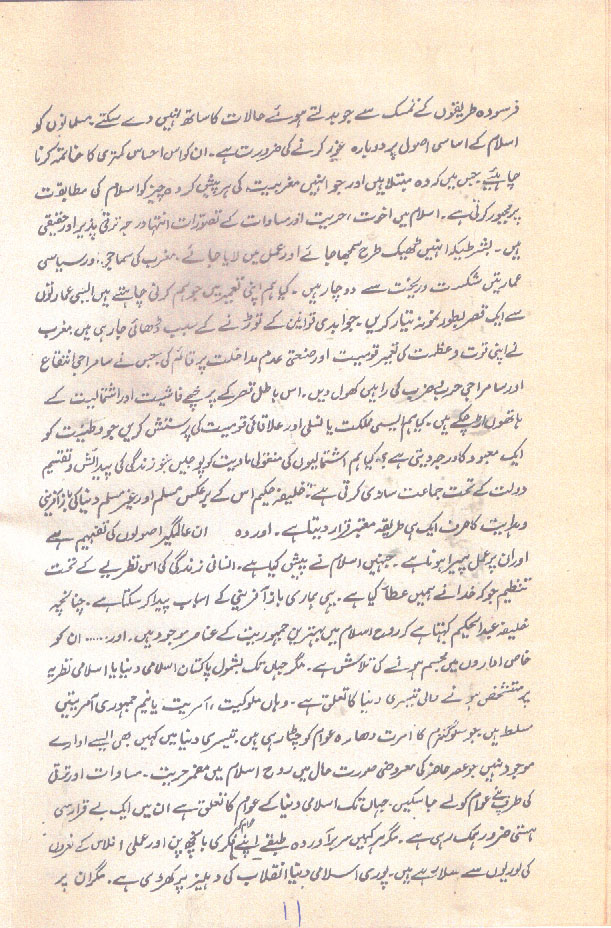 فرسودہ طریقوں کے تمسک سے جو بدلتے ہوئے حالات کا ساتھ نہیں دے سکتے۔ مسلمانوں کو
اسلام کے اساسی اصول پر دوبارہ غور کرنے کی ضرورت ہے۔ ان کو اس احساس کمتری کا خاتمہ کرنا
چاہیئے جس میں کہ وہ مبتلا ہیں اور جو انہیں مغربیت کی ہر پیش کردہ چیز کو اسلام کی مطابقت
پر مجبور کرتی ہے۔ اسلام میں اخوت، حریت اور مساوات کے تصورات انتہا درجہ ترقی پذیر اور حقیقی
ہیں۔ بشرطیکہ انہیں ٹھیک طرح سمجھا جائے اور عمل میں لایا جائے۔ مغرب کی سماجی اور سیاسی
عمارتیں شکست و ریخت سے دوچار ہیں۔ کیا ہم اپنی تعمیر میں جو ہم کرنی چاہتے ہیں ایسی عمارتوں
سے ایک قصر بطور نمونہ تیار کریں۔ جو ابدی قوانین کے توڑنے کے سبب ڈھائی جا رہی ہیں مغرب
نے اپنی قوت و عظمت کی تعمیر قومیت اور صنعتی عدم مداخلت پر قائم کی جس نے سامراجی انتفاع
اور سامراجی حرب و ضرب کی راہیں کھول دیں۔ اس باطل قصر کے پرخچے فاشیت اور اشتمالیت کے
ہاتھوں اڑ چکے ہیں۔ کیا ہم ایسی مملکت یا نسلی اور علاقائی قومیت کی پرستش کریں جو وطنیت کو
ایک معبود کا درجہ دیتی ہے؟ کیا ہم اشتمالیوں کی منقولی مادیت کو پوجیں جو زندگی کی پیدائش و تقسیم
دولت کے تحت جماعت سازی کرتی ہے؟ خلیفہ حکیم اس کے برعکس مسلم اور غیر مسلم دنیا کی بازآفرینی
و ہدایت کا صرف ایک ہی طریقہ معتبر قرار دیتا ہے۔ اور وہ ان عالمگیر اصولوں کی تفہیم ہے
اور ان پر عمل پیرا ہونا ہے۔ جنہیں اسلام نے پیش کیا ہے۔ انسانی زندگی کی اس نظریے کے تحت
تنظیم جو کہ خدا نے ہمیں عطا کیا ہے۔ یہی ہماری بازآفرینی کے اسباب پیدا کر سکتا ہے۔ چنانچہ
خلیفہ عبدالحکیم کہتا ہے کہ روح اسلام میں بہترین جمہوریت کے عناصر موجود ہیں۔ اور..... ان کو
خاص اداروں میں مجسم ہونے کی تلاش ہے۔ مگر جہاں تک بشمول پاکستان اسلامی دنیا یا اسلامی نظریہ
پر متشخص ہونے والی تیسری دنیا کا تعلق ہے۔ وہاں ملوکیت، آمریت یا نیم جمہوری آمریتیں
مسلط ہیں جو سلوگنزم کا امرت دھارہ عوام کو چٹا رہی ہیں۔ تیسری دنیا میں کہیں بھی ایسے ادارے
موجود نہیں جو عصر حاضر کی معروضی صورت حال میں روح اسلام میں مضمر حریت۔ مساوات اور ترقی
کی طرف عوام کو لے جا سکیں۔ جہاں تک اسلامی دنیا کے عوام کا تعلق ہے ان میں ایک بے قرار سی
ہستی ضرور ہمک رہی ہے۔ مگر ہر کہیں سربرآوردہ طبقے اپنے فکری بانجھ پن اور عملی افلاس کے نعروں
کی لوریوں سے سلا رہے ہیں۔ پوری اسلامی دنیا انقلاب کی دہلیز پر کھڑی ہے۔ مگر ان پر
11